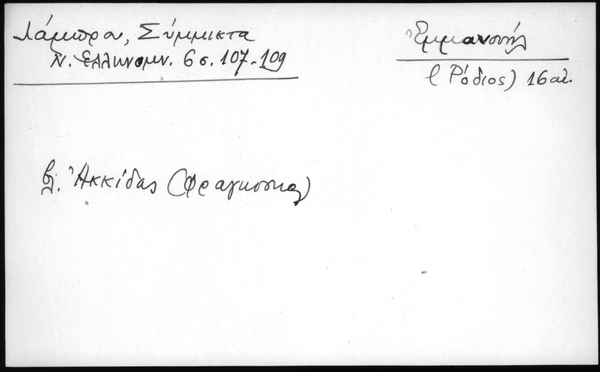 Λάμπρου, Σύμμικτα
Ν. Ελληνομν. 6 σ. 107-109
Ἐμμανουήλ
(Ρόδιος) 16 αἰ.
βλ. Ἀκκίδας (Φραγκίσκος)